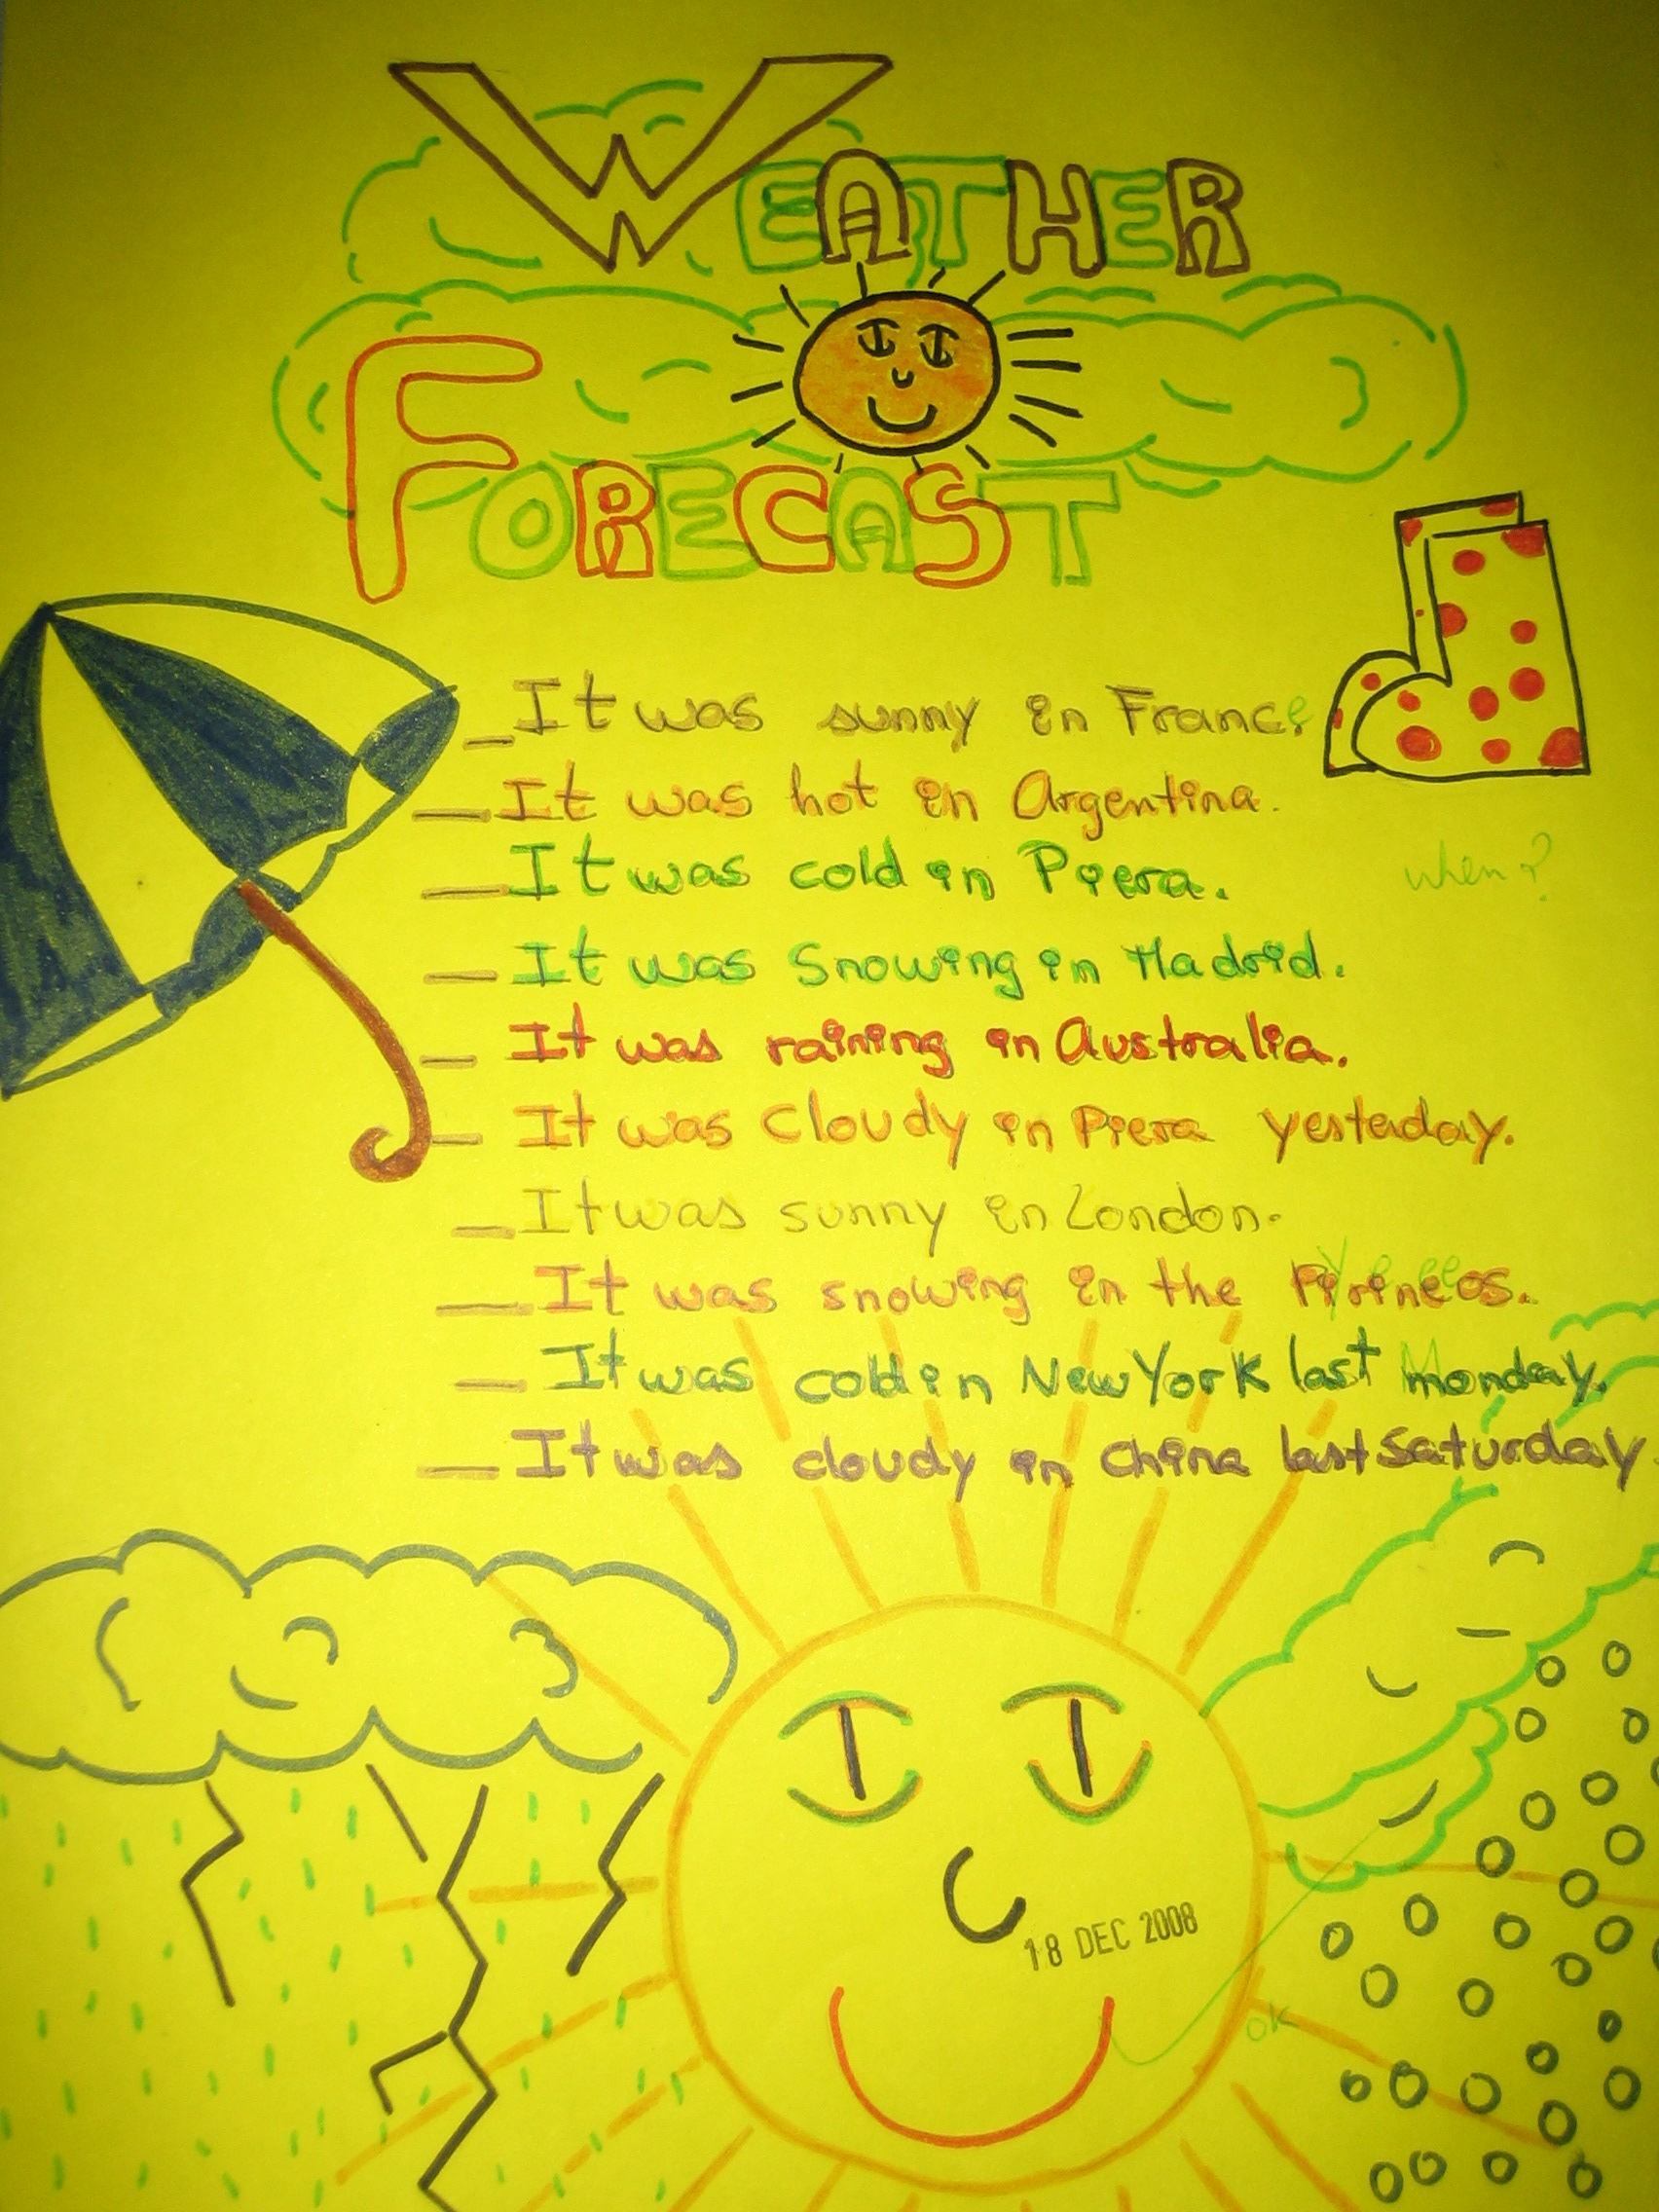 WEATHER
FORECAST
_It was sunny in France
_It was hot in Argentina.
_It was cold in Piera.
when?
_It was Snowing in Madrid.
_It was raining in Australia.
_It was Cloudy in Piera yesterday.
_It was sunny in London.
_It was snowing in the Pirineos.
_It was cold in New York last Monday.
_It was cloudy in China last Saturday
18 DEC 2008
ok